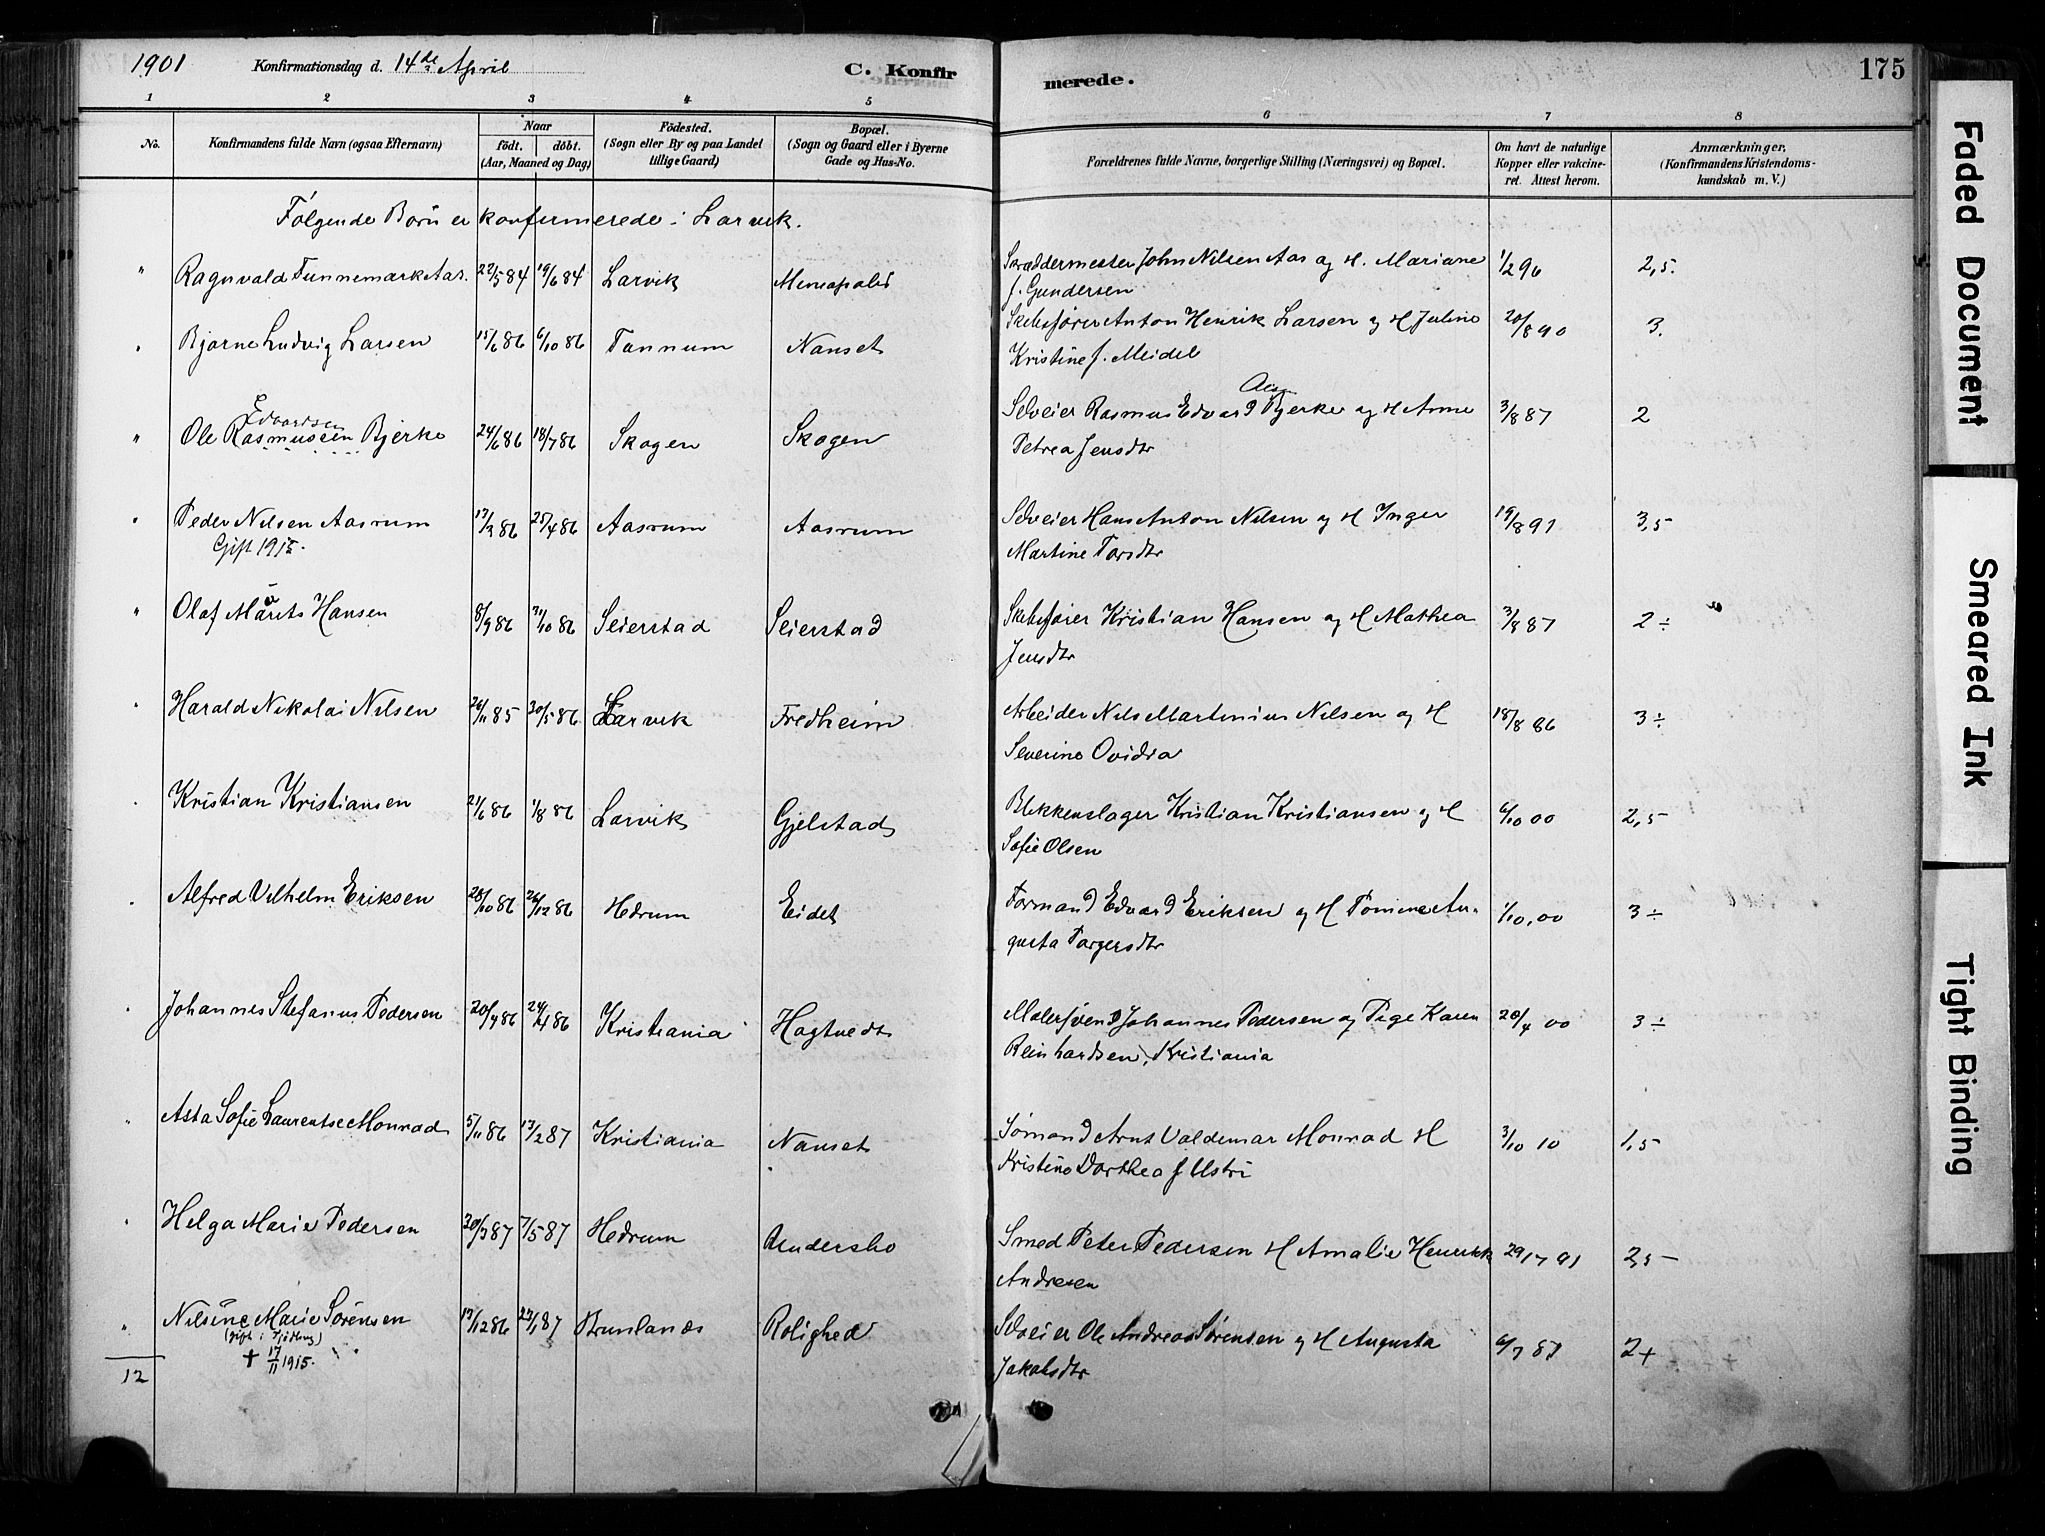 1901 Konfirmationsdag d. 14de April C. Konfirmerede. 175
1 2 3 4 5 6 7 8
No. Konfirmandens fulde Navn (ogsaa Efternavn) Naar födt. döbt. (Aar, Maaned og Dag) Födested. (Sogn eller By og paa Landet tillige Gaard) Bopæl. (Sogn og Gaard eller i Byerne Gade og Hus-No. Forældrenes fulde Navne, borgerlige Stilling (Næringsvei) og Bopæl. Om havt de naturlige Kopper eller vakcineret. Attest herom. Anmærkninger. (Konfirmandens Kristendomskundskab m. V.)
Følgende Børn er konfirmerede i Larvik.
" Ragnvald Tunnemark Aas. 22/5 84 19/6 84 Larvik Mineapolis Skræddermester John Nilsen Aas og H. Mariane 1/2 96 2,5.
f. Gundersen
" Bjarne Ludvig Larsen 15/6 86 6/10 86 Tannum Nanset Skibsfører Anton Henrik Larsen og H Juline 20/8 90 3.
Kristine f. Meidel
Edvardsen
" Ole Rasmussen Bjerke 24/6 86 18/7 86 Skogen Skogen Selveier Rasmus Edvard Bjerke og H Anne 3/8 87 2
Petrea Jensdtr
" Peder Nilsen Aasrum 17/3 86 25/4 86 Aasrum Aasrum Selveier Hans Anton Nilsen og H Inger 19/8 91 3,5
Gift 1915. Martine Torsdtr
" Olaf Marits Hansen 8/9 86 31/10 86 Seierstad Seierstad Skibsfører Kristian Hansen og H Mathea 3/8 87 2 ÷
Jensdtr
" Harald Nikolai Nilsen 26/11 85 30/5 86. Larvik Fredheim Arbeider Nils Martinius Nilsen og H 18/8 86 3 ÷
Severine Ovidia
" Kristian Kristiansen 21/6 86 1/8 86 Larvik Gjelstad Blikkenslager Kristian Kristiansen og H 6/10 00 2,5
Sofie Olsen
" Alfred Vilhelm Eriksen 28/10 86 26/12 86 Hedrum Eidet Formand Edvard Eriksen og H Tomine Au- 1/10,00 3 ÷
gusta Torgersdtr
" Johannes Stefanus Pedersen 20/4 86 24/4 86 Kristiania Hagtvedt Malersvend Johannes Pedersen og Pige Karen 28/4 00 3 ÷
Reinhardsen, Kristiania
" Asta Sofie Laurentse Monrad 5/11 86 13/2 87 Kristiania Nanset Sømand Arnt Valdemar Monrad H 3/10 10 1,5
Kristine Dorthea f Ustri
" Helga Marie Pedersen 30/3 87 7/5 87 Hedrum Smed Peter Pedersen H Amalie Henrikk 29/7 91 2,5 —
Andresen
" Nilsine Marie Sørensen 17/12 86 23/1 87 Brunlanæs Rolighed Selveier Ole Andreas Sørensen og H Augusta 6/7 87 2 +
(gift i Tjølling) Jakobsdtr
+ 17/11 1915.
12
Faded Document
Smeared Ink
Tight Binding